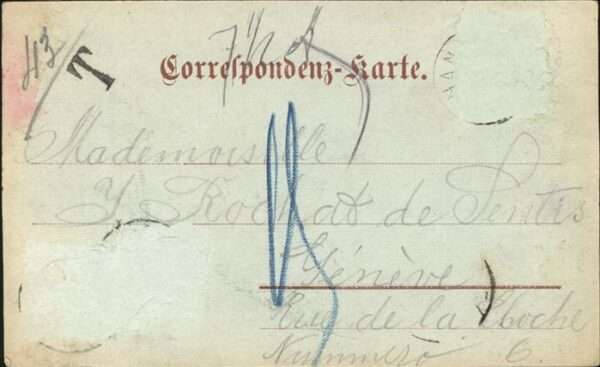 43
T
7½ d
Correspondenz-Karte.
Mademoiselle
Y Rochat de
Génève
Rue de la Cloche
Numméro 6.